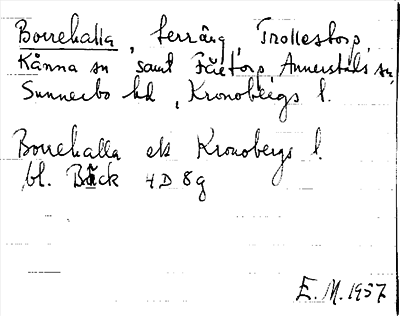 Borrehalla, terräng, Trollestorp,
Kånna sn samt Fåetorp, Annerstads sn,
Sunnerbo hd, Kronobergs l.
Borrehalla ek Kronobergs l.
bl. Bäck 4D 8g
E. M. 1957